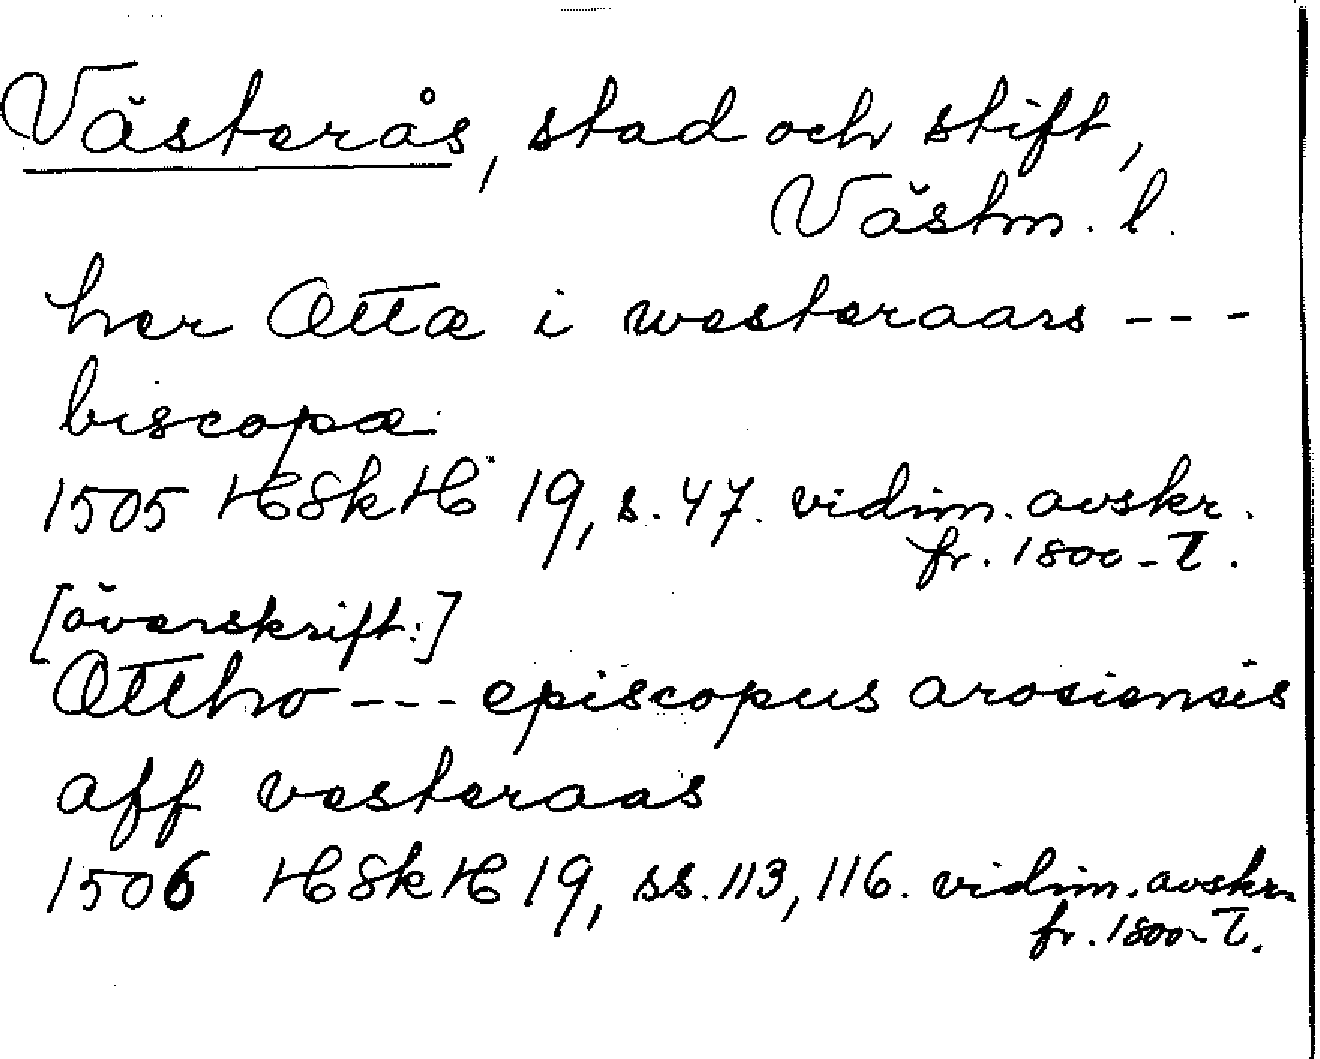 Västerås, stad och stift,
Västm. l.
her Ottæ i westeraars ---
biscopæ
1505 HSkH 19, s. 47. vidim. avskr.
fr. 1800-T.
[överskrift:]
Ottho --- episcopus arosiensis
aff vesteraas
1506 HSkH 19, ss. 113, 116. vidim. avskr.
fr. 1800-T.